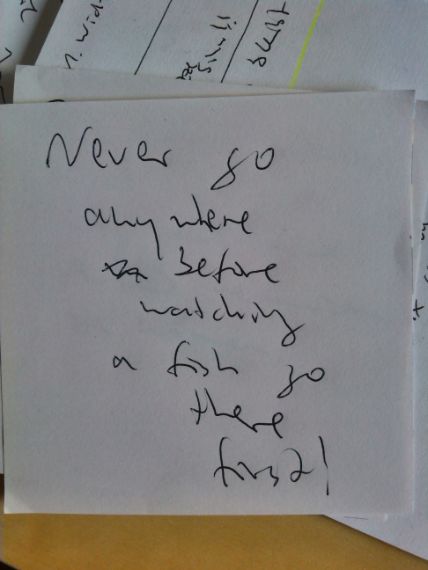 Never go
anywhere
before
watching
a fish go
there
first!